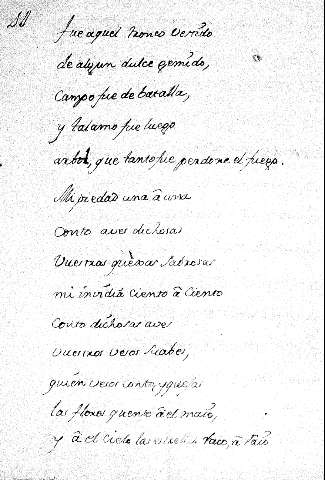 fue aquel tronco vestido
de algun dulce gemido,
Campo fue de batalla,
y talamo fue luego
arbol, que tanto fue perdone el fuego.
Mi piedad una â una
Conto aves dichosas
Vuestras quèxas sabrosas
mi invidia ciento â ciento
Conto dichosas aves
vuestros vesos suabes,
quien vesos conto, y quexas
las flores quente â el maio,
y â el cielo las estrellas raio, â raio